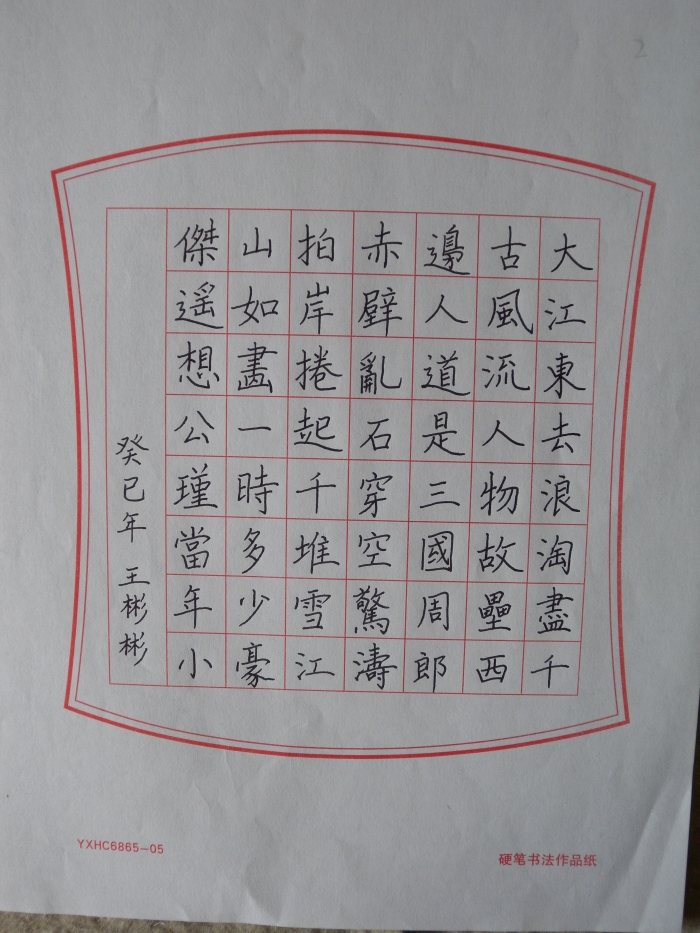 大江東去浪淘盡千
古風流人物故壘西
邊人道是三國周郎
赤壁亂石穿空驚濤
拍岸捲起千堆雪江
山如畵一時多少豪
傑遥想公瑾當年小
癸巳年 王彬彬
YXHC6865-05
硬笔书法作品纸
2